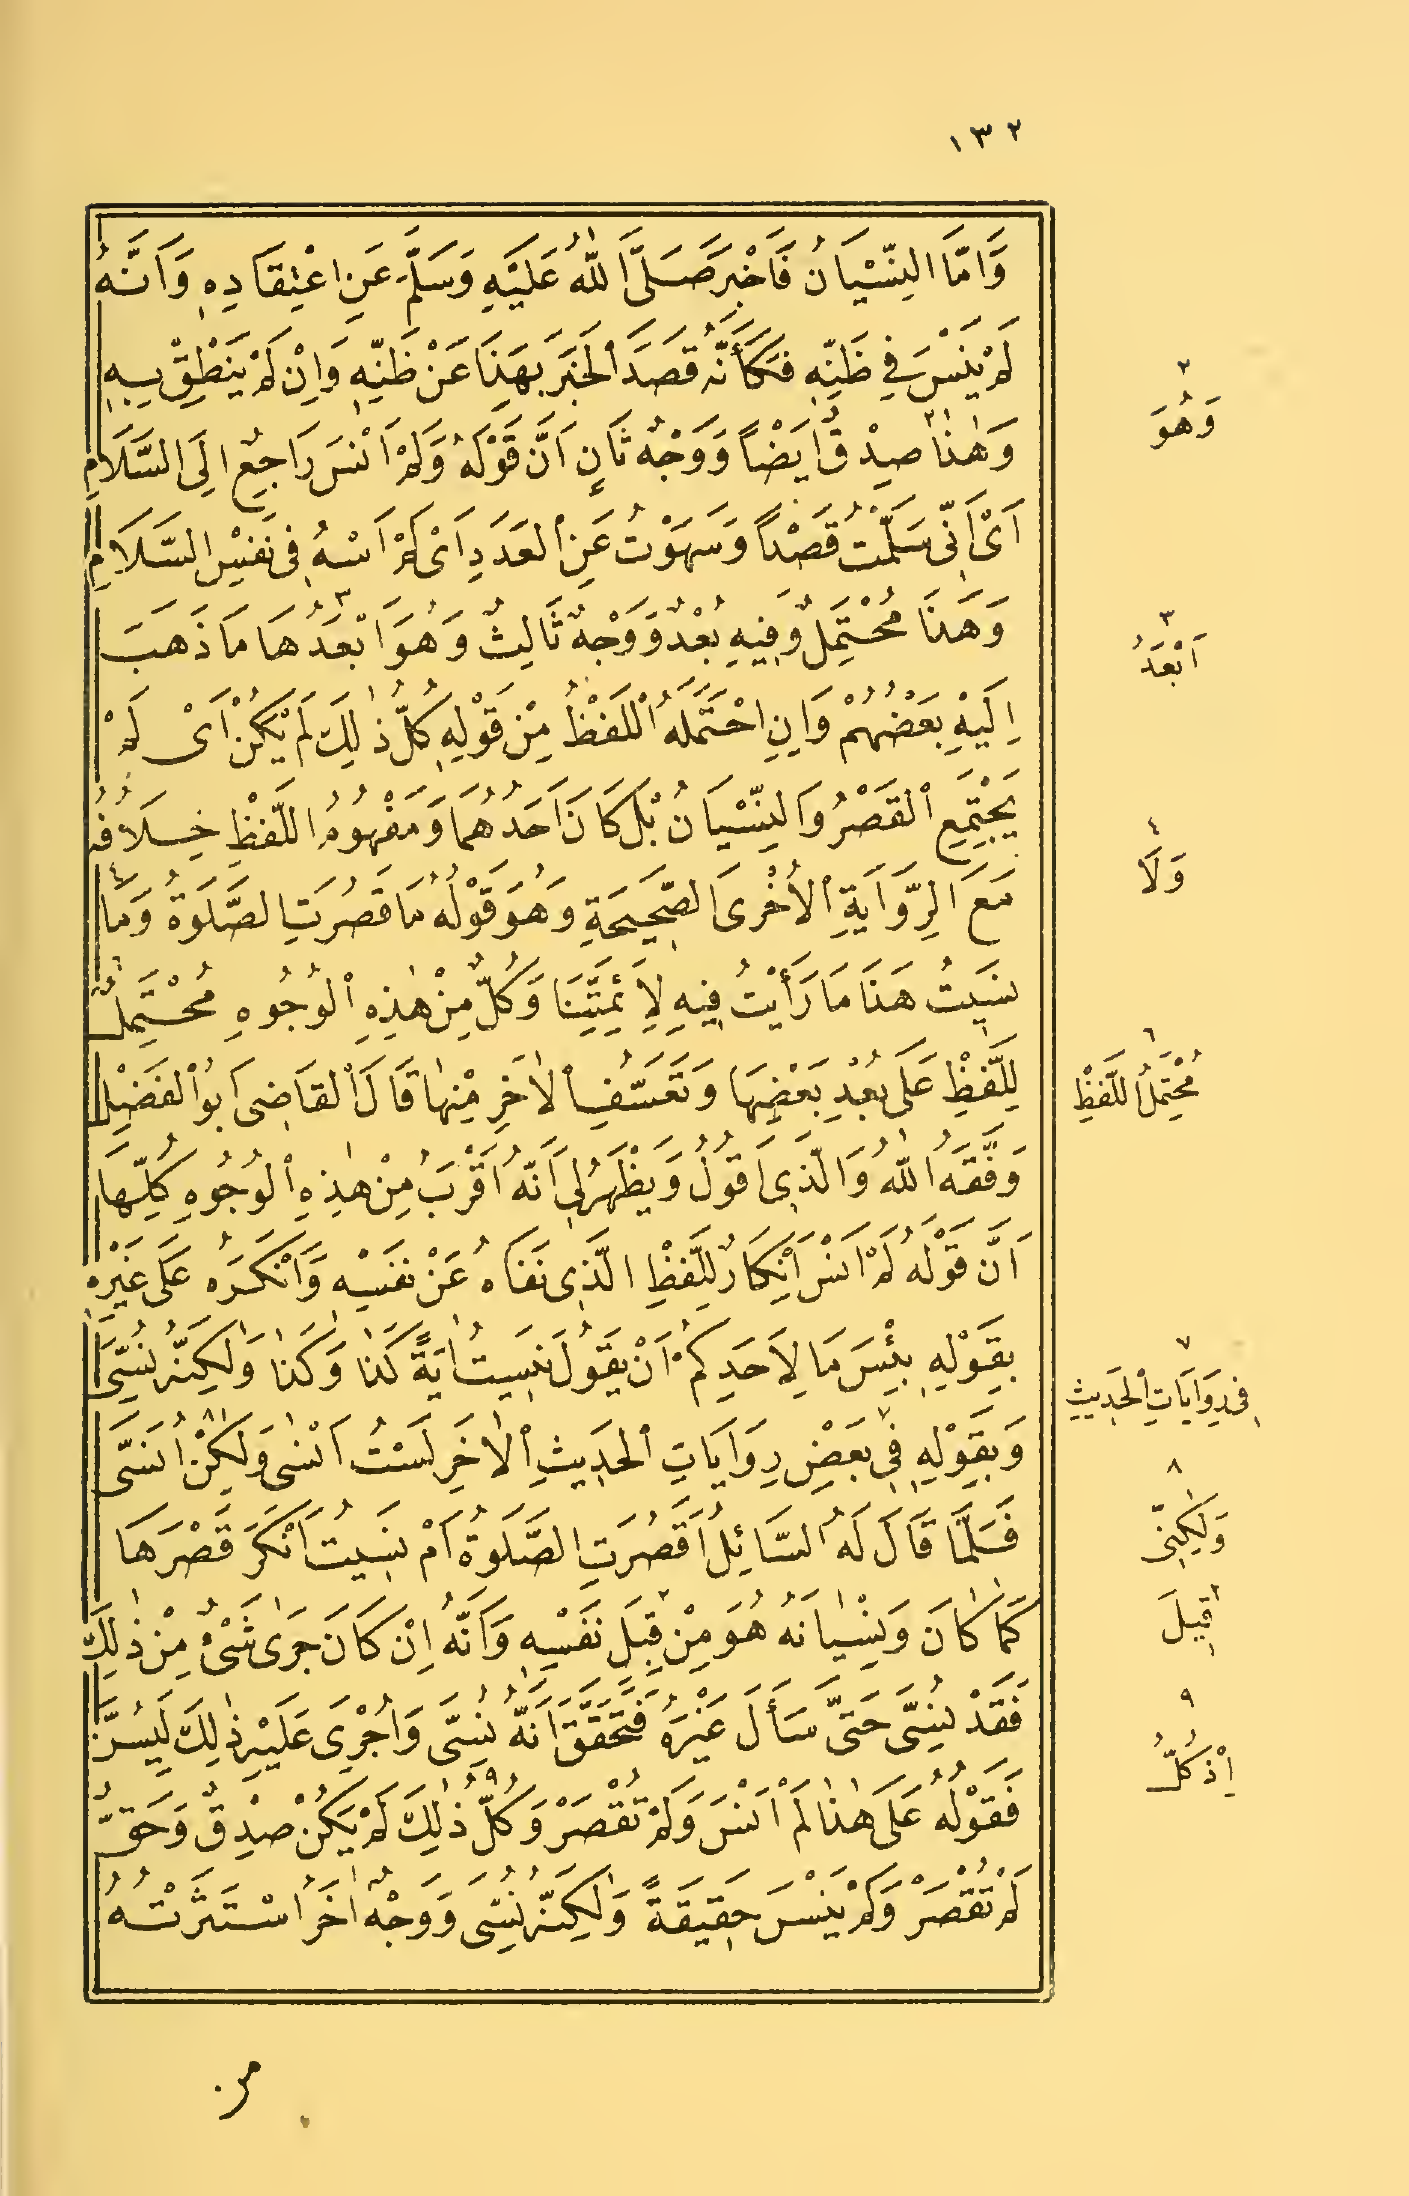 ١٣٢
وَاَمَّا النِّسْيَانُ فَاَخْبَرَ صَلَّى اللهُ عَلَيْهِ وَسَلَّمَ عَنِ اعْتِقَادِهِ وَاَنَّهُ
لَمْ يَنْسَ فِي ظَنِّهِ فَكَأَنَّهُ قَصَدَ الْخَبَرَ بِهَذَا عَنْ ظَنِّهِ وَاِنْ لَمْ يَنْطِقْ بِهِ
وَهٰذَا ٢ صِدْقٌ اَيْضًا وَوَجْهٌ ثَانٍ اَنَّ قَوْلَهُ وَلَمْ اَنْسَ رَاجِعٌ اِلَى السَّلَامِ
اَىْ اَنِّى سَلَّمْتُ قَصْدًا وَسَهَوْتُ عَنِ الْعَدَدِ اَىْ لَمْ اَسْهُ فِى نَفْسِ السَّلَامِ
وَهَذَا مُحْتَمِلٌ وَفِيهِ بُعْدٌ وَوَجْهٌ ثَالِثٌ وَهُوَ اَبْعَدُهَا ٣ مَا ذَهَبَ
اِلَيْهِ بَعْضُهُمْ وَاِنِ احْتَمَلَهُ اللَّفْظُ مِنْ قَوْلِهِ كُلُّ ذٰلِكَ لَمْ يَكُنْ اَىْ لَمْ
يَجْتَمِعِ الْقَصْرُ وَالنِّسْيَانُ بَلْ كَانَ اَحَدُهُمَا وَمَفْهُومُ اللَّفْظِ خِلَافُهُ
مَعَ الرِّوَايَةِ الْأُخْرَى الصَّحِيحَةِ وَهُوَ قَوْلُهُ مَا قَصُرَتِ الصَّلٰوةُ وَمَا ٤
نَسِيتُ هَذَا مَا رَأَيْتُ فِيهِ لِأَئِمَّتِنَا وَكُلٌّ مِنْ هٰذِهِ الْوُجُوهِ مُحْتَمِلٌ ٦
لِلَّفْظِ عَلَى بُعْدِ بَعْضِهَا وَتَعَسُّفِ الْاٰخَرِ مِنْهَا قَالَ الْقَاضِى اَبُو الْفَضْلِ
وَفَّقَهُ اللهُ وَالَّذِى اَقُولُ وَيَظْهَرُ لِى اَنَّهُ اَقْرَبُ مِنْ هٰذِهِ الْوُجُوهِ كُلِّهَا
اَنَّ قَوْلَهُ لَمْ اَنْسَ اِنْكَارٌ لِلَّفْظِ الَّذِى نَفَاهُ عَنْ نَفْسِهِ وَاَنْكَرَهُ عَلَى غَيْرِهِ
بِقَوْلِهِ بِئْسَ مَا لِاَحَدِكُمْ اَنْ يَقُولَ نَسِيتُ اٰيَةَ كَذَا وَكَذَا وَلٰكِنَّهُ نُسِّىَ
وَبِقَوْلِهِ فِى بَعْضِ ٧ رِوَايَاتِ الْحَدِيثِ الْاٰخَرِ لَسْتُ اَنْسٰى وَلٰكِنْ ٨ اُنَسَّى
فَلَمَّا قَالَ لَهُ السَّائِلُ اَقَصُرَتِ الصَّلٰوةُ اَمْ نَسِيتَ اَنْكَرَ قَصْرَهَا
كَمَا كَانَ وَنِسْيَانَهُ هُوَ مِنْ قِبَلِ ٢ نَفْسِهِ وَاَنَّهُ اِنْ كَانَ جَرٰى شَىْءٌ مِنْ ذٰلِكَ
فَقَدْ نُسِّىَ حَتَّى سَأَلَ غَيْرَهُ فَتَحَقَّقَ اَنَّهُ نُسِّىَ وَاُجْرِىَ عَلَيْهِ ذٰلِكَ لِيَسُنَّ
فَقَوْلُهُ عَلَى هٰذَا لَمْ اَنْسَ وَلَمْ تُقْصَرْ وَكُلُّ ٩ ذٰلِكَ لَمْ يَكُنْ صِدْقٌ وَحَقٌّ
لَمْ تُقْصَرْ وَلَمْ يَنْسَ حَقِيقَةً وَلٰكِنَّهُ نُسِّىَ وَوَجْهٌ اٰخَرُ اسْتَثَرْتُهُ
٢
وَهُوَ
٣
اَبْعَدُ
٤
وَلَا
٦
مُحْتَمَلُ اللَّفْظِ
٧
فِى رِوَايَاتِ الْحَدِيثِ
٨
وَلٰكِنِّى
قِيلَ
٩
اِذْ كُلُّ
من